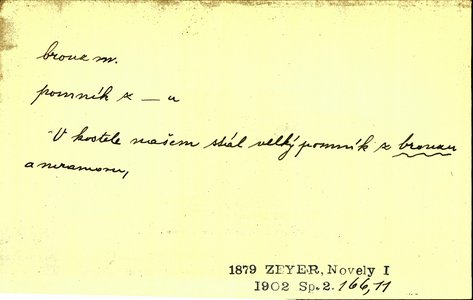 bronz m.
pomník z — u
V kostele našem stál velký pomník z bronzu
a mramoru,
1879 ZEYER, Novely I
1902 Sp. 2. 166,11